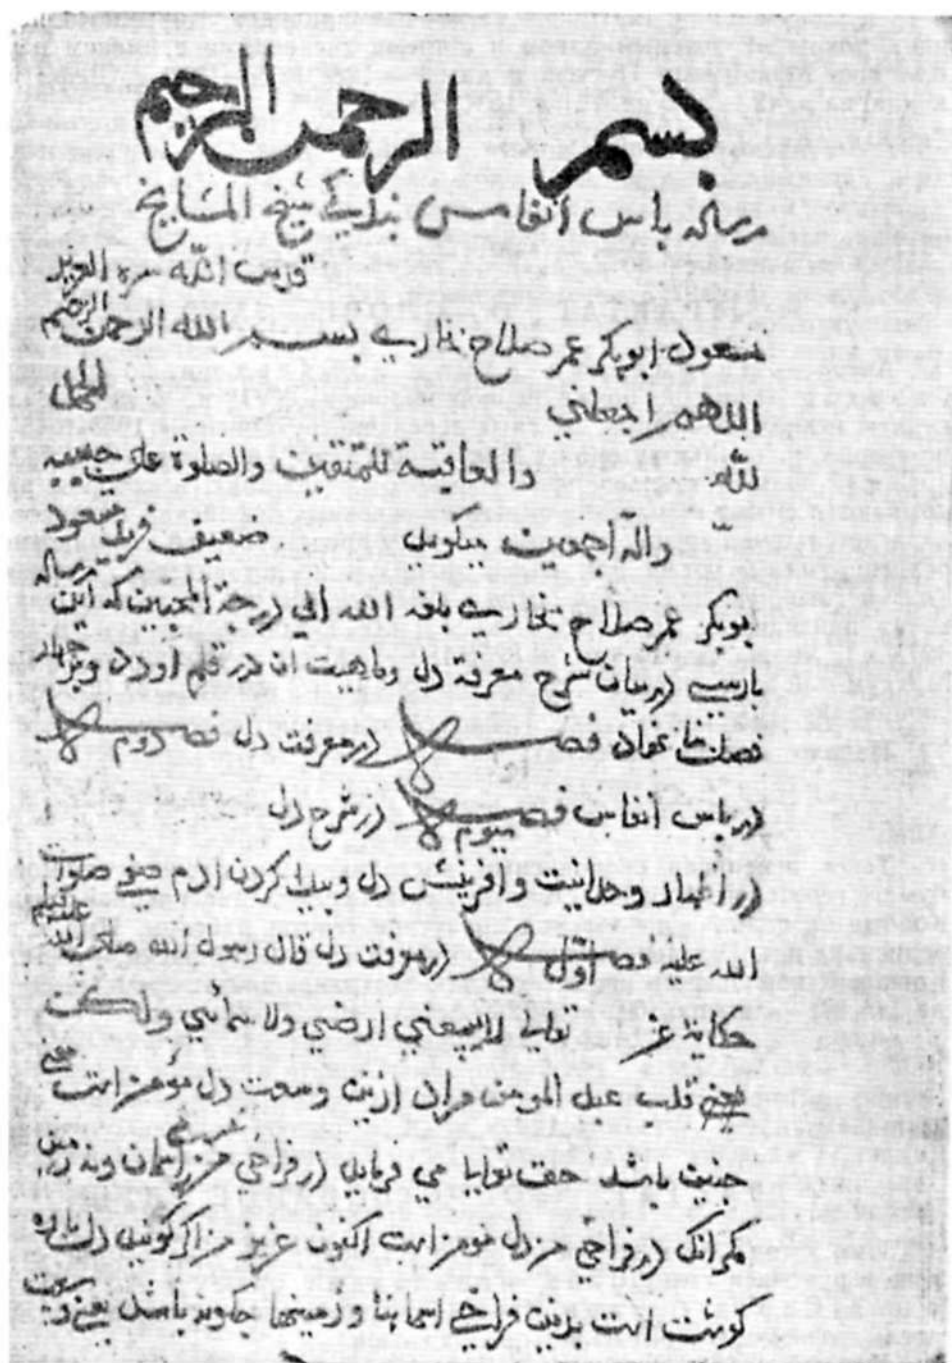 بسم الرحمن الرحيم
رساله باس انفاس بندگي شيخ المشايخ
قدس الله سره العزيز
مسعود ابوبكر عمر صلاح بخاري بسم الله الرحمن الرحيم
اللهم اجعلني
لله والعاقبة للمتقين والصلوة علي حبيبه
واله اجمعين ميگويد ضعيف فريد مسعود
بوبكر عمر صلاح بخاري بلغه الله الي درجة المحبين كه اين رساله
پارسي در بيان شرح معرفة دل وماهيت ان در قلم اورد
فصل در معرفت دل فصل دوم
در پاس انفاس فصل سيوم در شرح دل
در اظهار وحدانيت وافرينش دل وپيدا كردن ادم صفي صلوات
الله عليه فصل اول در معرفت دل قال رسول الله صلي الله عليه
حكاية عن تعالي لا يسعني ارضي ولا سمائي ولكن
يسعني قلب عبد المومن مراد ازين وسعت دل مؤمن است
چنين باشد حق تعالي مي فرمايد در فراخي من اسمان ونه زمين
مگر انك در فراخي من دل مومن است اكنون عزيز من اگر گويند دل پاره
گوشت است بدين فراخي اسمانها وزمينها چگونه باشد يعني